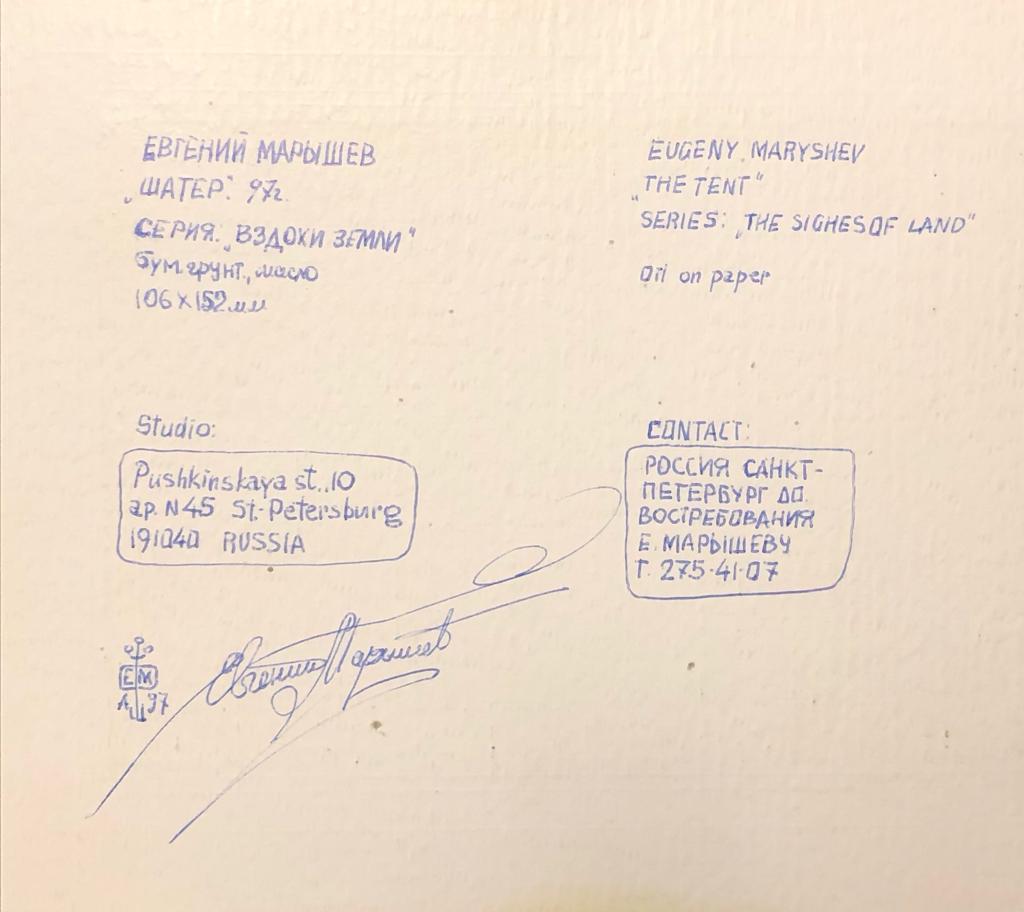 ЕВГЕНИЙ МАРЫШЕВ
„ШАТЕР". 97г.
СЕРИЯ: „ВЗДОХИ ЗЕМЛИ"
бум. грунт., масло
106 х 152 мм
EUGENY MARYSHEV
„THE TENT"
SERIES: „THE SIGHES OF LAND"
Oil on paper
Studio:
Pushkinskaya st. 10
ap. N45 St-Petersburg
191040 RUSSIA
CONTACT:
РОССИЯ САНКТ-
ПЕТЕРБУРГ ДО.
ВОСТРЕБОВАНИЯ
Е. МАРЫШЕВУ
Т. 275-41-07
ЕМ
97
Евгений Марышев